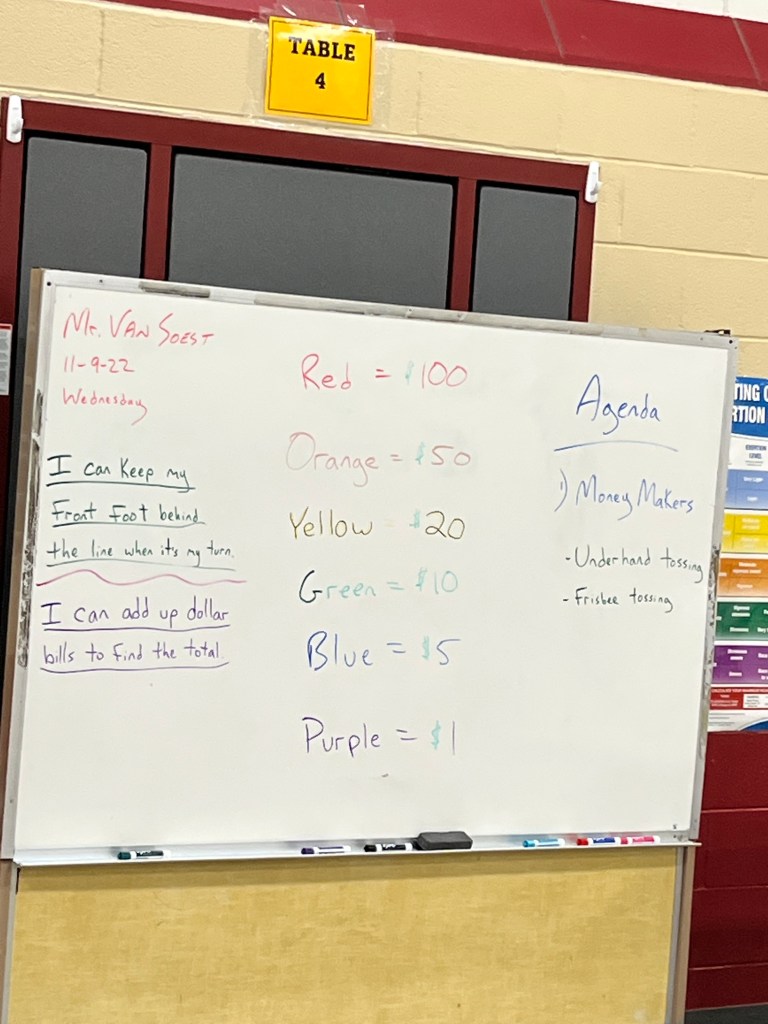 TABLE
4
Mr. Van Soest
11-9-22
Wednesday
I can keep my
front foot behind
the line when it's my turn.
I can add up dollar
bills to find the total.
Red = $100
Orange = $50
Yellow = $20
Green = $10
Blue = $5
Purple = $1
Agenda
1) Money Makers
- Underhand tossing
- Frisbee tossing